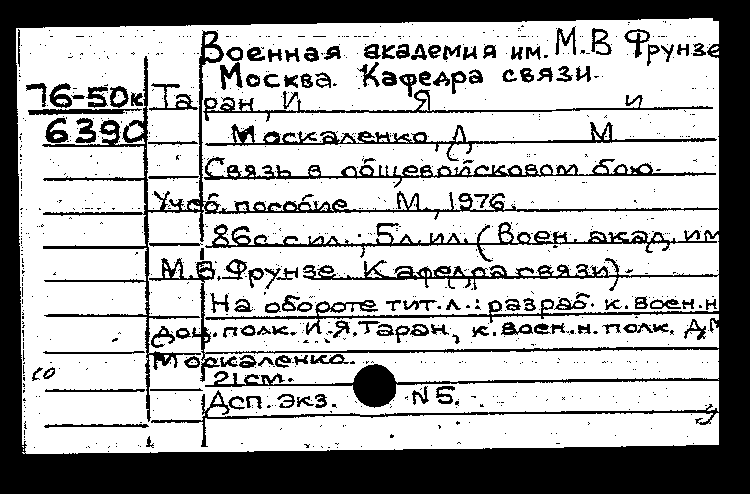 Военная академия им. М.В Фрунзе
Москва. Кафедра связи.
76-50к Таран, И Я и
6390 Москаленко, Д, М
Связь в общевойсковом бою.
Учеб. пособие М., 1976.
86с. с ил.; 5л. ил. (Воен. акад. им
М.В. Фрунзе. Кафедра связи).
На обороте тит. л.: разраб. к. воен. н
доц. полк. И.Я. Таран, к. воен. н. полк. Д.М
Москаленко.
21см.
Дсп. экз. N 5.